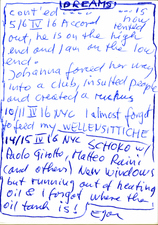 DREAMS
cont'ed
5/16 IV 16 Accord
out, he is on the high
end and I am on the low
end.
Johanna forced her way
into a club, insulted people
and created a ruckus
10/11 IV 16 NYC I almost forgot
to feed my WELLENSITTICHE
14/15 IV 16 NYC SCHOKO w/
Paolo Girotto, Matteo Raini
(and others) New windows
but running out of heating
oil & I forgot where the
oil tank is!